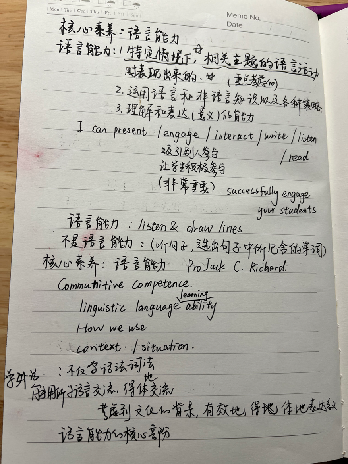 Memo No.
Date
核心素养：语言能力
语言能力：1.特定情境下，相关主题的语言活动
时表现出来的
2.运用语言和非语言知识以及各种策略
3.理解和表达(意义)的能力
I can present / engage / interact / write / listen
/ read
吸引别人参与
让学生积极参与
(非常重要)
successfully engage
your students
语言能力：listen & draw lines
不是语言能力：(听句子，选出句子中所包含的单词)
核心素养：语言能力 Pro Jack C. Richard
Commutitive competence
learning
linguistic language ability
How we use
context / situation.
：不仅学语法词法
学外语
语言交流，得体地交流
考虑到文化的背景，有效地，得
语言能力的核心部份